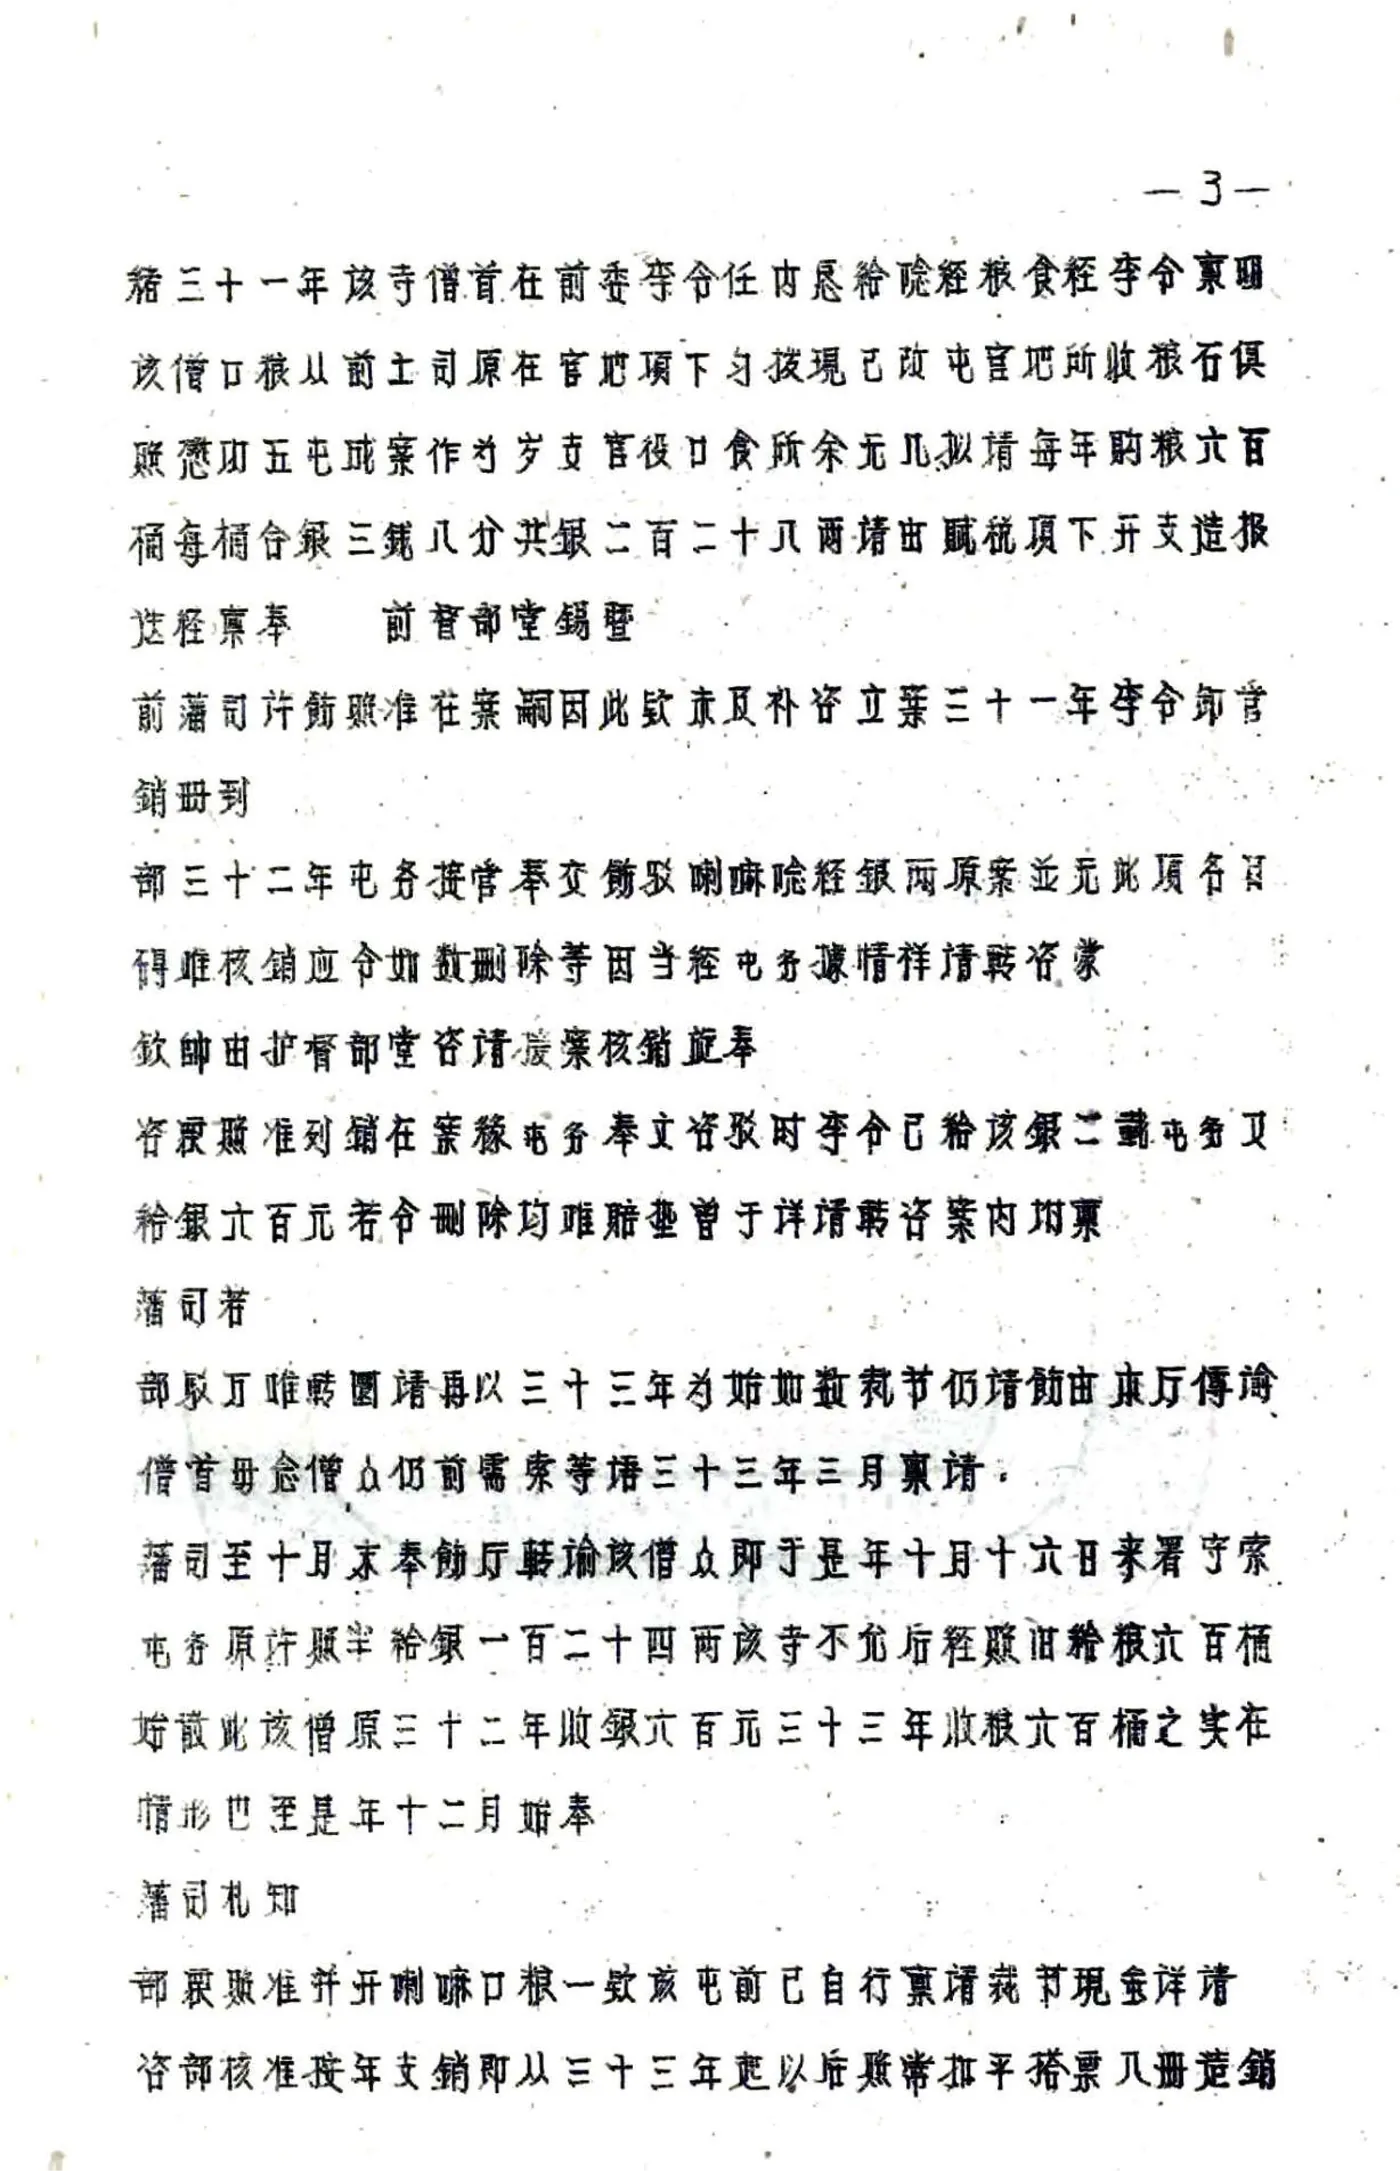 —3—
绪三十一年该寺僧首在前委李令任内恳给唸经粮食经李令禀明
该僧口粮从前土司原在官地項下匀拨現己改屯官地所收粮石俱
照懋功五屯成案作为岁支官役口食所余无几拟请每年购粮六百
桶每桶合银三錢八分共銀二百二十八两请由赋税項下开支造报
迭经禀奉 前督部堂錫暨
前藩司许飭照准在案嗣因此欵未及补咨立案三十一年李令卸官
銷册到
部三十二年屯务接管奉文飭驳喇嘛唸经銀两原案並无此項名目
碍难核銷应令如数删除等因当经屯务據情祥请転咨蒙
欽帥由护督部堂咨请援案核銷旋奉
咨覆照准列銷在案緣屯务奉文咨驳时李令己给该銀二載屯务又
给銀六百元若令删除均难賠垫曾于详请転咨案内均禀
藩司若
部驳万难転圜请再以三十三年为始如数裁节仍请飭由本厅傳諭
僧首毋念僧众仍前需索等语三十三年三月禀请。
藩司至十月末奉飭厅転谕该僧众即于是年十月十六日来署守索
屯务原许照半给銀一百二十四两该寺不允后经照旧给粮六百桶
始散此该僧原三十二年收銀六百元三十三年收粮六百桶之实在
情形也至是年十二月始奉
藩司札知
部覆照准并开喇嘛口粮一欵该屯前己自行禀请裁节現奎详请
咨部核准按年支銷即从三十三年起以后照常扣平搭票入册造銷